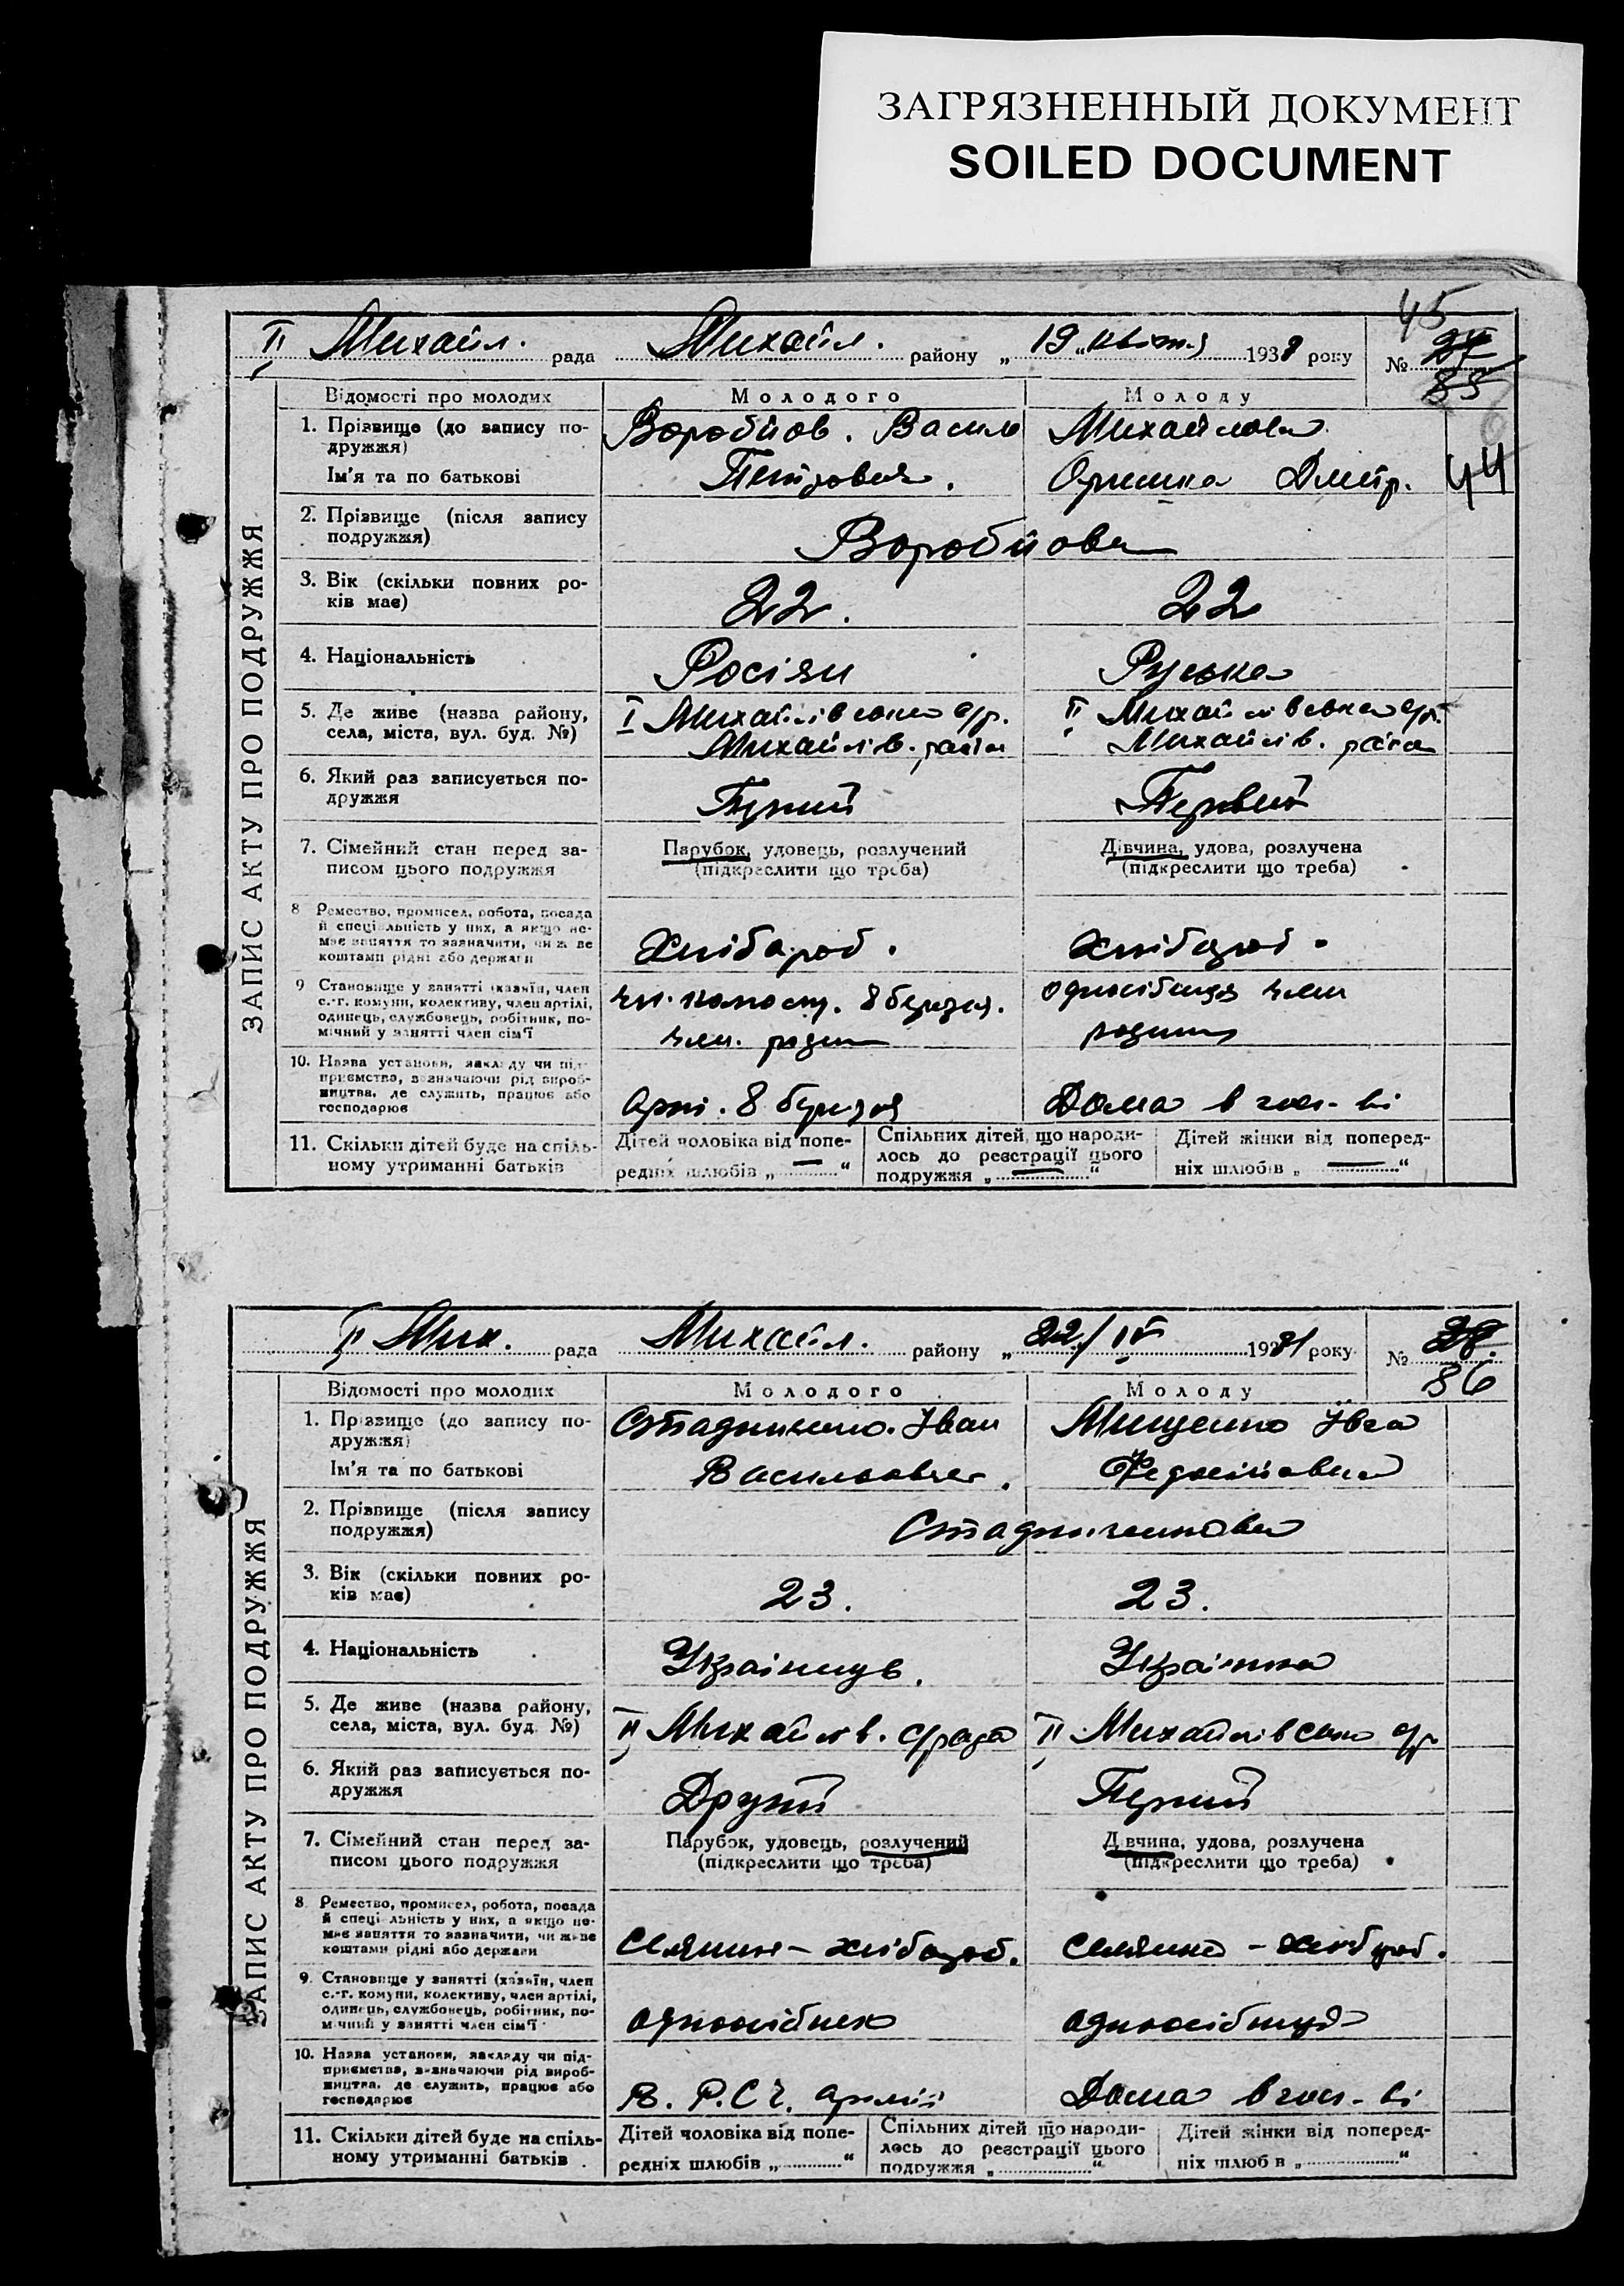 ЗАГРЯЗНЕННЫЙ ДОКУМЕНТ
SOILED DOCUMENT
45
ІІ Михайл. рада Михайл. району „ 19 „ квітня 193 року № 27
85
Відомості про молодих Молодого Молоду
ЗАПИС АКТУ ПРО ПОДРУЖЖЯ
1. Прізвище (до запису по- Воробйов. Василь Михайлова
дружжя)
Ім'я та по батькові Петрович. Оришка Дмитр. 44
2. Прізвище (після запису
подружжя) Воробйова
3. Вік (скільки повних ро-
ків має) 22. 22
4. Національність Росіян Руська
5. Де живе (назва району, І Михайлівська с/р. ІІ Михайлівська с/р.
села, міста, вул. буд. №) Михайлів. району Михайлів. району
6. Який раз записується по-
дружжя Перший Первий
7. Сімейний стан перед за- Парубок, удовець, розлучений Дівчина, удова, розлучена
писом цього подружжя (підкреслити що треба) (підкреслити що треба)
8 Ремество, промисел, робота, посада
й спеціальність у них, а якщо не-
має заняття то зазначити, чиїм же
коштами рідні або держави Хлібороб. Хлібороб.
9 Становище у занятті (хазяїн, член чл. 8 березня. одноосібниця член
с.-г. комуни, колективу, член артілі,
одинець, службовець, робітник, по-
мічний у занятті член сім'ї член. родини родини
10. Назва установи, закладу чи під-
приємства, зазначаючи рід вироб-
ництва, де служить, працює або
господарює Арт. 8 березня Дома в госп-ві
11. Скільки дітей буде на спіль- Дітей чоловіка від попе- Спільних дітей, що народи- Дітей жінки від поперед-
ному утриманні батьків редніх шлюбів „ — “ лось до реєстрації цього ніх шлюбів „ — “
подружжя „ — “
ІІ Мих. рада Михайл. району „ 22/IV 1931 року № 28.
86
Відомості про молодих Молодого Молоду
ЗАПИС АКТУ ПРО ПОДРУЖЖЯ
1. Прізвище (до запису по- Стадниченко. Іван Мищенко Ївга
дружжя)
Ім'я та по батькові Васильович. Федосіївна
2. Прізвище (після запису
подружжя) Стадниченкова
3. Вік (скільки повних ро-
ків має) 23. 23.
4. Національність Українець. Українка
5. Де живе (назва району,
села, міста, вул. буд. №) ІІ Михайлів. с/рада ІІ Михайлівська с/р
6. Який раз записується по-
дружжя Другий Перший
7. Сімейний стан перед за- Парубок, удовець, розлучений Дівчина, удова, розлучена
писом цього подружжя (підкреслити що треба) (підкреслити що треба)
8 Ремество, промисел, робота, посада
й спеціальність у них, а якщо не-
має заняття то зазначити, чи живе
коштами рідні або держави Селянин – хлібороб. Селянка – хлібороб.
9. Становище у занятті (хазяїн, член
с.-г. комуни, колективу, член артілі,
одинець, службовець, робітник, по-
мічний у занятті член сім'ї одноосібник одноосібниця
10. Назва установи, закладу чи під-
приємства, зазначаючи рід вироб-
ництва, де служить, працює або
господарює В. Р.С.Ч. армії Дома в госп-ві
11. Скільки дітей буде на спіль- Дітей чоловіка від попе- Спільних дітей що народи- Дітей жінки від поперед-
ному утриманні батьків редніх шлюбів „ “ лось до реєстрації цього ніх шлюбів „ “
подружжя „ “